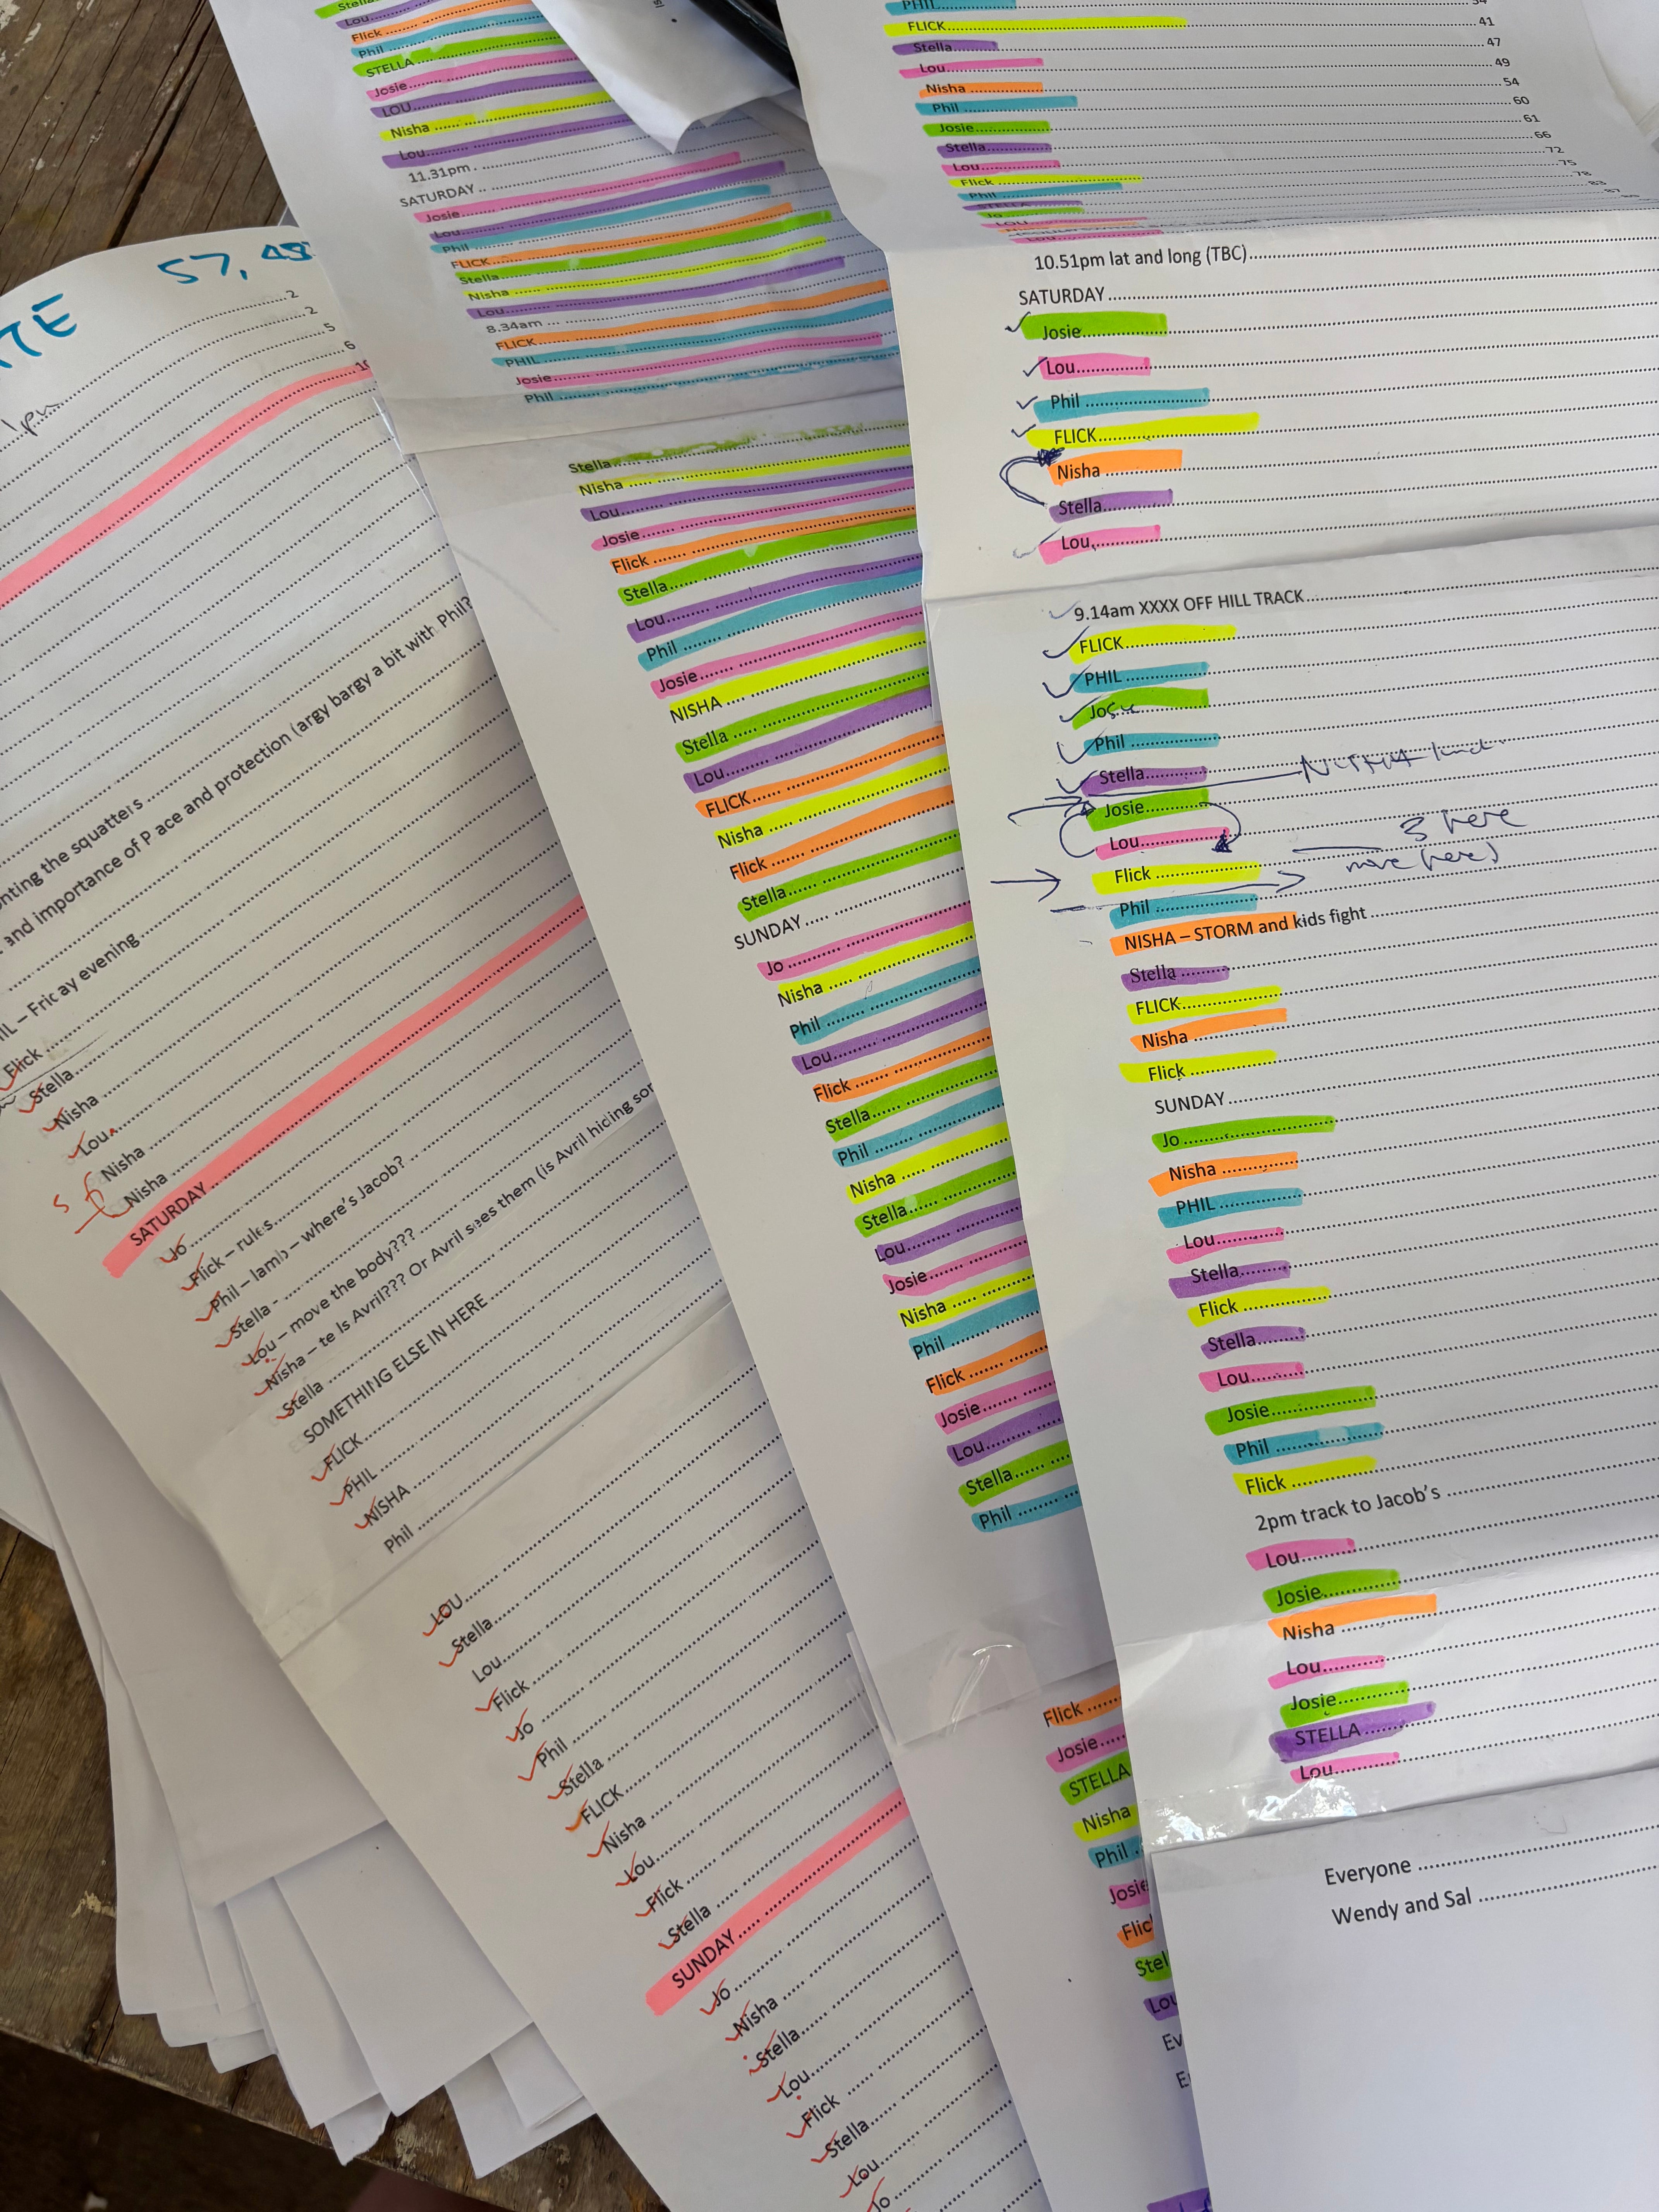 57,
2
2
5
6
nting the squatters
and importance of P ace and protection (argy bargy a bit with Phil?
IL – Fric ay evening
Flick
Stella
Nisha
Lou
Nisha
Nisha
SATURDAY
Jo
Flick – rules
Phil – lamb – where's Jacob?
Stella -
Lou – move the body???
Nisha – te Is Avril??? Or Avril sees them (is Avril hiding sor
Stella
SOMETHING ELSE IN HERE
FLICK
PHIL
NISHA
Phil
LOU
Stella
Lou
Flick
Jo
Phil
Stella
FLICK
Nisha
Lou
Flick
Stella
SUNDAY
Jo
Nisha
Stella
Lou
Flick
Stella
Lou
Jo
Stella
Lou
Flick
Phil
STELLA
Josie
LOU
Nisha
Lou
11.31pm
SATURDAY
Josie
Lou
Phil
FLICK
Stella
Nisha
Lou
8.34am
FLICK
PHIL
Josie
Phil
Stella
Nisha
Lou
Josie
Flick
Stella
Lou
Phil
Josie
NISHA
Stella
Lou
FLICK
Nisha
Flick
Stella
SUNDAY
Jo
Nisha
Phil
Lou
Flick
Stella
Phil
Nisha
Stella
Lou
Josie
Nisha
Phil
Flick
Josie
Lou
Stella
Phil
Flick
Josie
STELLA
Nisha
Phil
Josie
Flic
Stel
Lou
Ev
E
PHIL 34
FLICK 41
Stella 47
Lou 49
Nisha 54
Phil 60
Josie 61
Stella 66
Lou 72
Flick 75
Phil 78
STELLA 83
Jo 87
LOU
Lou
10.51pm lat and long (TBC)
SATURDAY
Josie
Lou
Phil
FLICK
Nisha
Stella
Lou
9.14am XXXX OFF HILL TRACK
FLICK
PHIL
Josie
Phil
Stella
Josie
Lou
3 here
Flick
move (here)
Phil
NISHA – STORM and kids fight
Stella
FLICK
Nisha
Flick
SUNDAY
Jo
Nisha
PHIL
Lou
Stella
Flick
Stella
Lou
Josie
Phil
Flick
2pm track to Jacob's
Lou
Josie
Nisha
Lou
Josie
STELLA
Lou
Everyone
Wendy and Sal